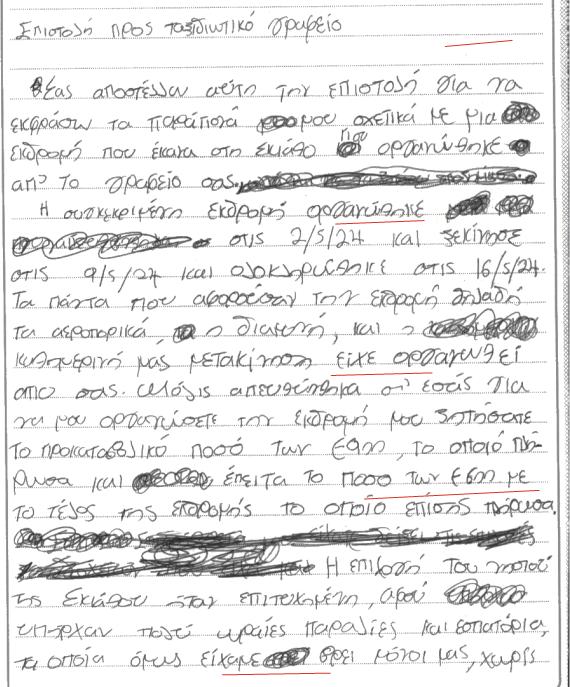 Επιστολή προς ταξιδιωτικό γραφείο
Σας αποστέλλω αυτή την επιστολή για να
εκφράσω τα παράπονά μου σχετικά με μια
εκδρομή που έκανα στη Σκιάθο που οργανώθηκε
από το γραφείο σας.
Η συγκεκριμένη εκδρομή οργανώθηκε
στις 2/5/24 και ξεκίνησε
στις 9/5/24 και ολοκληρώθηκε στις 16/5/24.
Τα πάντα που αφορούσαν την εκδρομή δηλαδή
τα αεροπορικά, η διαμονή, και η
καθημερινή μας μετακίνηση είχε οργανωθεί
από σας. Μόλις απευθύνθηκα σ' εσάς για
να μου οργανώσετε την εκδρομή μου ζητήσατε
το προκαταβολικό ποσό των, το οποίο πλή-
ρωσα και έπειτα το ποσο των με
το τέλος της εκδρομής το οποίο επίσης πλήρωσα.
Η επιλογή του νησιού
της Σκιάθου ήταν επιτυχημένη, αφού
υπήρχαν πολύ ωραίες παραλίες και εστιατόρια,
τα οποία όμως είχαμε βρει μόνοι μας, χωρίς